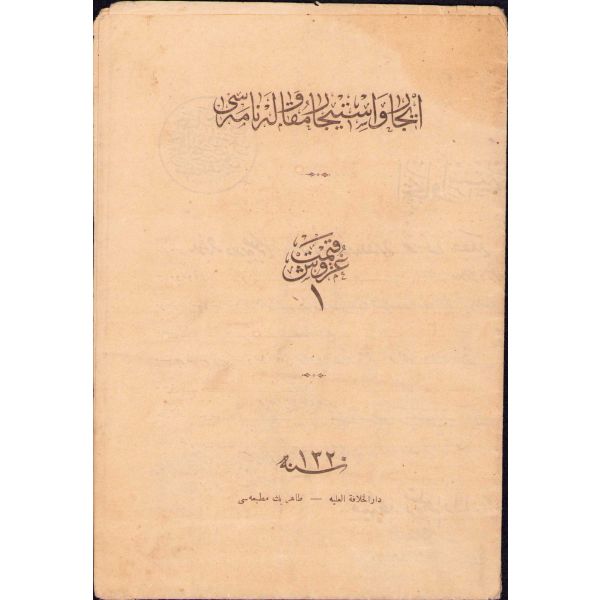 ایجار و استیجار مقاوله نامه سی
قیمت
غروش
١
سنه ١٣٢٠
دار الخلافة العلیه — طاهر بك مطبعه سی